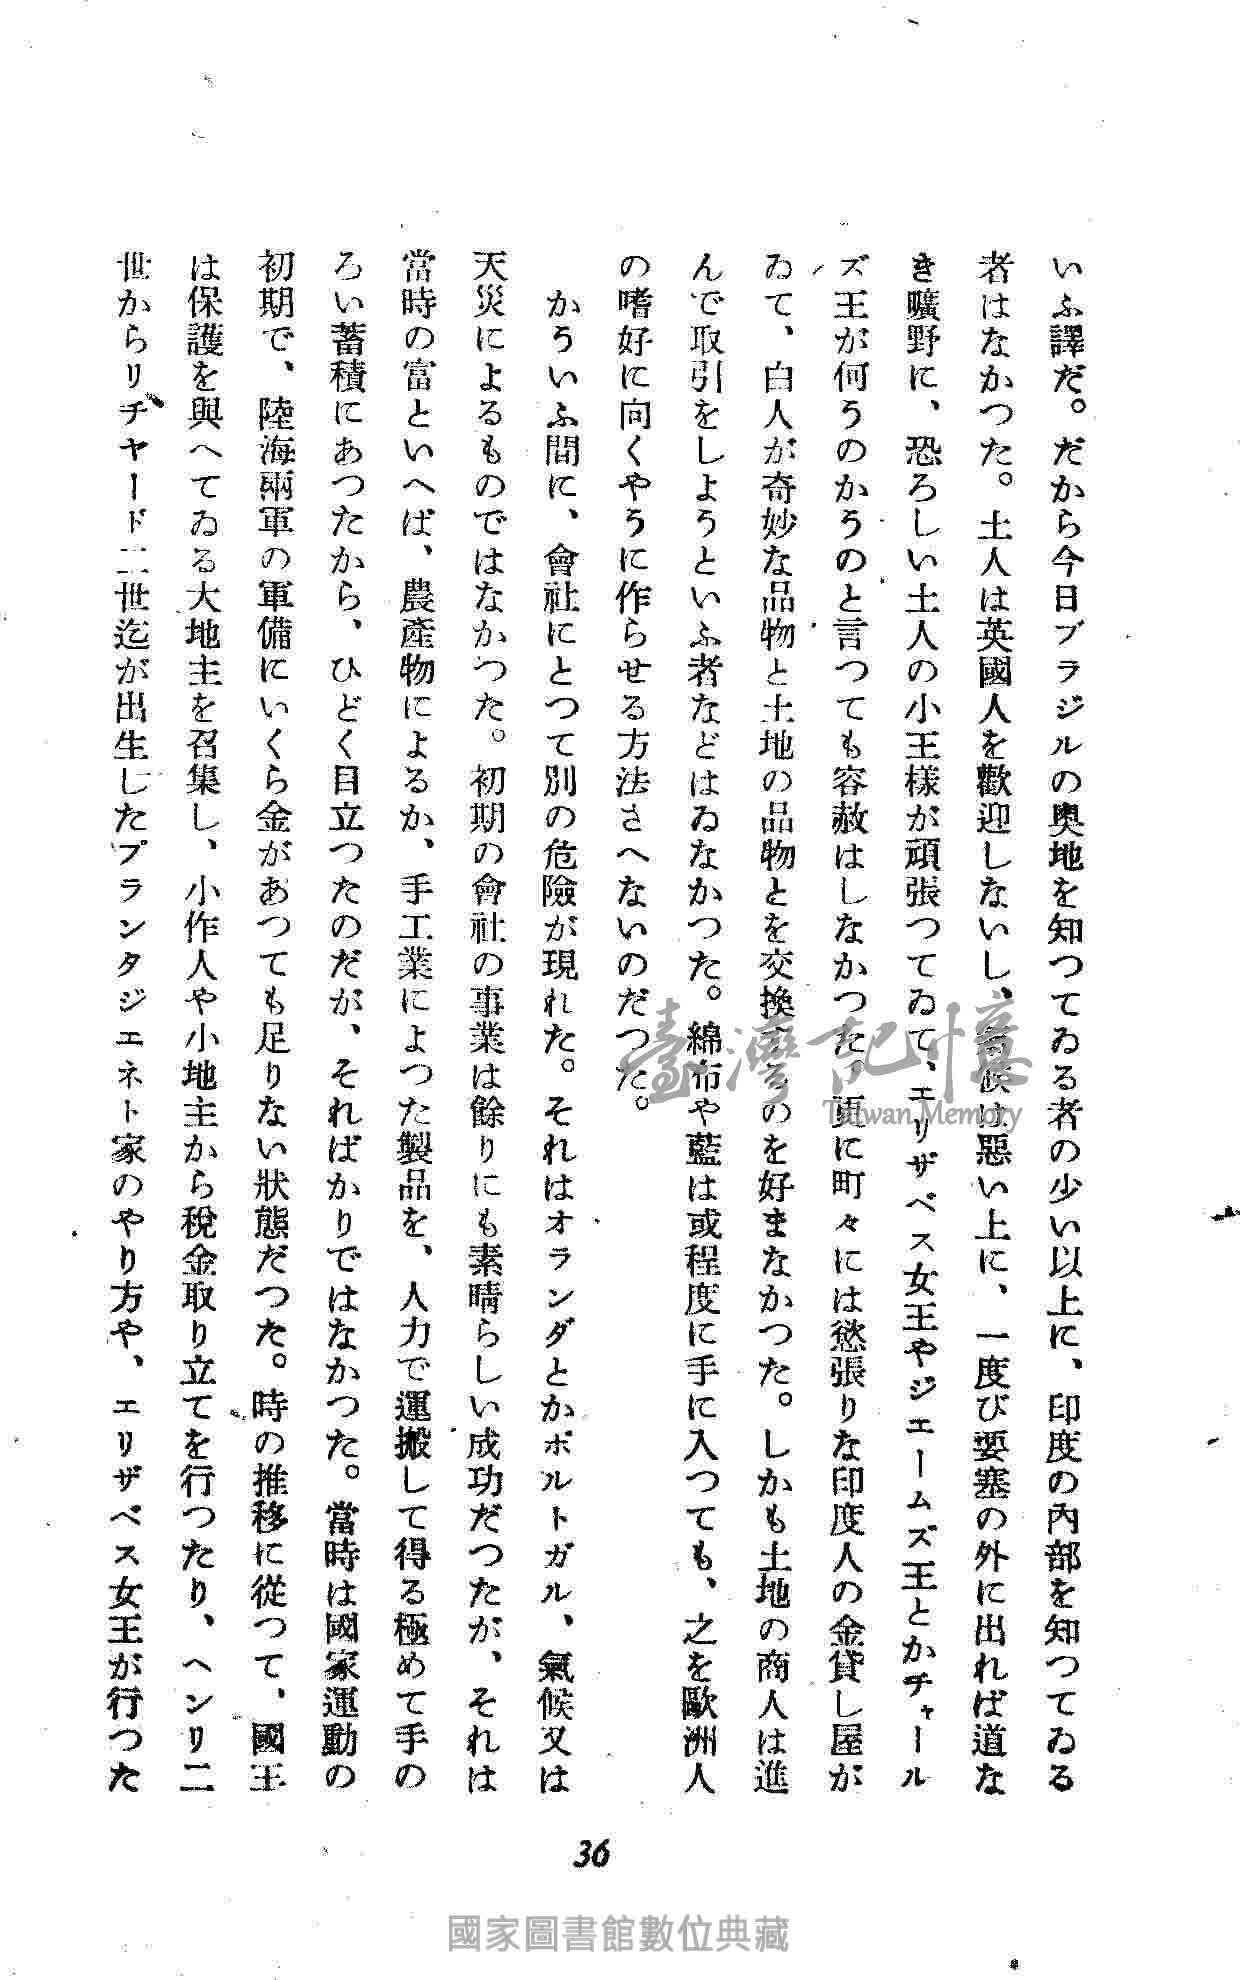 いふ譯だ。だから今日ブラジルの奥地を知つてゐる者の少い以上に、印度の內部を知つてゐる
者はなかつた。土人は英國人を歡迎しないし、氣候は惡い上に、一度び要塞の外に出れば道な
き曠野に、恐ろしい土人の小王樣が頑張つてゐて、エリザベス女王やジエームズ王とかチャール
ズ王が何うのかうのと言つても容赦はしなかつた。更に町々には慾張りな印度人の金貸し屋が
ゐて、白人が奇妙な品物と土地の品物とを交換するのを好まなかつた。しかも土地の商人は進
んで取引をしようといふ者などはゐなかつた。綿布や藍は或程度に手に入つても、之を歐洲人
の嗜好に向くやうに作らせる方法さへないのだつた。
かういふ間に、會社にとつて別の危險が現れた。それはオランダとかポルトガル、氣候又は
天災によるものではなかつた。初期の會社の事業は餘りにも素晴らしい成功だつたが、それは
當時の富といへば、農產物によるか、手工業によつた製品を、人力で運搬して得る極めて手の
ろい蓄積にあつたから、ひどく目立つたのだが、そればかりではなかつた。當時は國家運動の
初期で、陸海兩軍の軍備にいくら金があつても足りない狀態だつた。時の推移に從つて、國王
は保護を與へてゐる大地主を召集し、小作人や小地主から稅金取り立てを行つたり、ヘンリ二
世からリチヤード二世迄が出生したプランタジエネト家のやり方や、エリザベス女王が行つた
36
臺灣記憶
Taiwan Memory
國家圖書館數位典藏